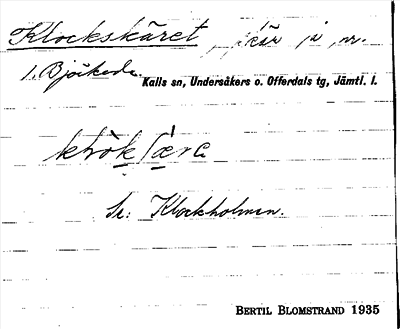 Klockskäret, skär i nr.
1. Björkede.
Kalls sn, Undersåkers o. Offerdals tg, Jämtl. l.
Se: Klockholmen.
BERTIL BLOMSTRAND 1935